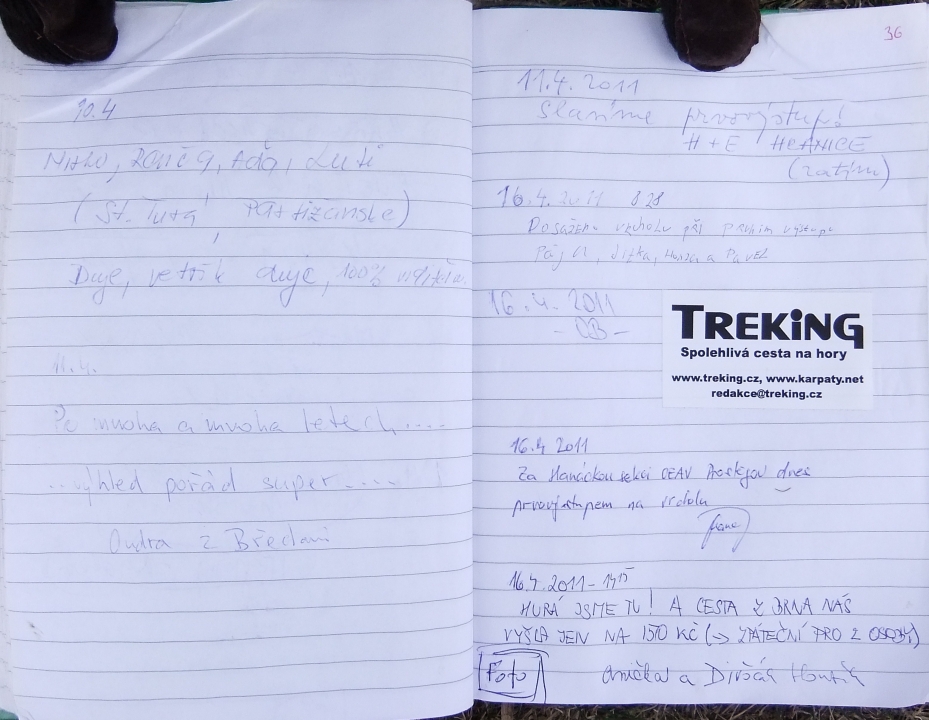 10.4
Adá,
(St. Turá, Partizánske)
Duje, vetrík duje, 100%
11.4.
Po mnoha a mnoha letech....
..výhled pořád super.... !
Ondra z Břeclavi
36
11.4.2011
Slavíme prvovýstup!
H + E HRANICE
(zatím)
16.4.2011 828
Dosažení vrcholu při prvním výstupu
Jitka, Honza a Pavel
16.4.2011
- OB -
TREKiNG
Spolehlivá cesta na hory
www.treking.cz, www.karpaty.net
redakce@treking.cz
16.4 2011
Za Hanáckou sekci OEAV Prostějov dnes
prvovýstupem na vrcholu
16.4.2011 - 14 15
HURÁ JSME TU! A CESTA Z BRNA NÁS
VYŠLA JEN NA 150 KČ (-> ZPÁTEČNÍ PRO 2 OSOBY)
Foto
Anička a